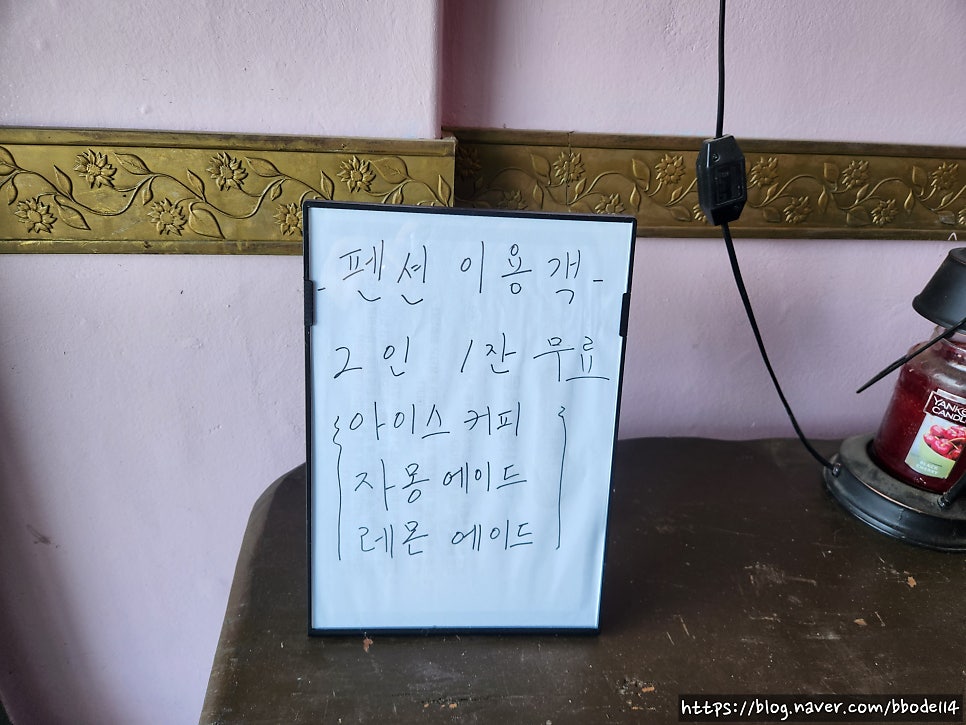 - 펜션 이용객 -
2인 1잔 무료
아이스 커피
자몽 에이드
레몬 에이드
YANKEE
CANDLE
BLACK
CHERRY
https://blog.naver.com/bbodell4